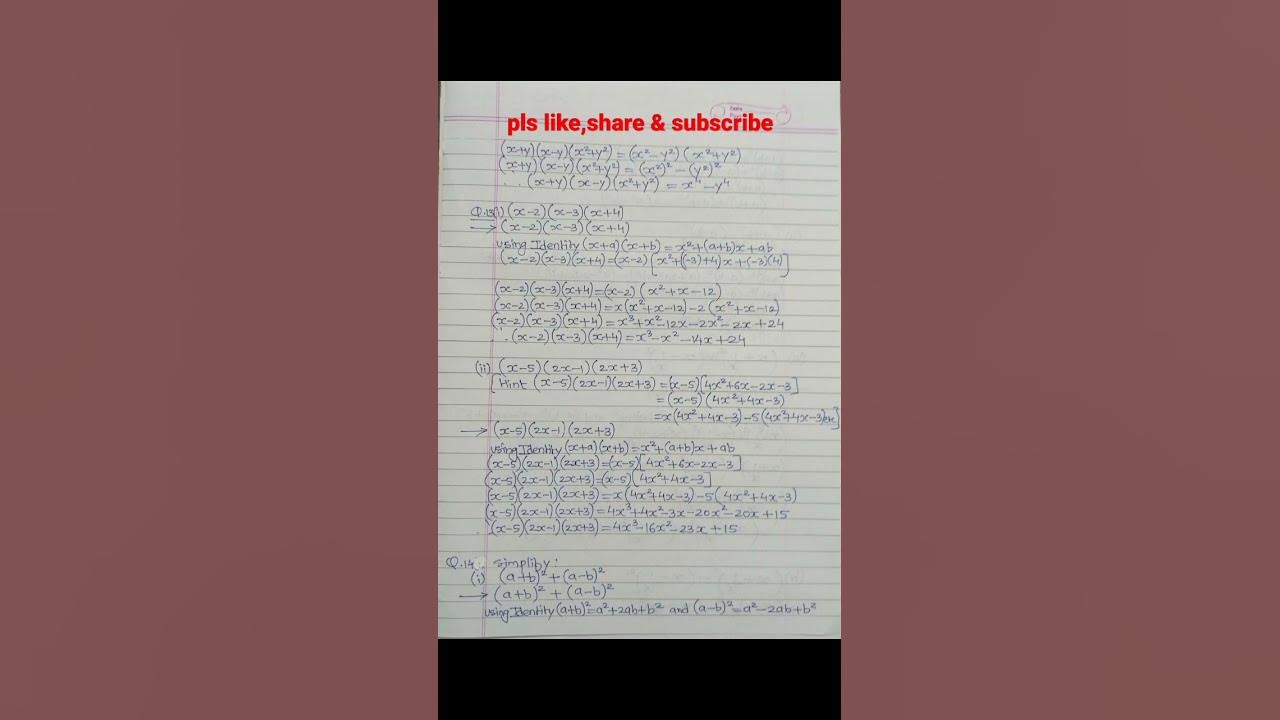 Date
pls like,share & subscribe
(x+y)(x-y)(x²+y²)=(x²-y²)(x²+y²)
(x+y)(x-y)(x²+y²)=(x²)²-(y²)²
∴ (x+y)(x-y)(x²+y²)=x⁴-y⁴
Q.13(i) (x-2)(x-3)(x+4)
→ (x-2)(x-3)(x+4)
using Identity (x+a)(x+b)=x²+(a+b)x+ab
(x-2)(x-3)(x+4)=(x-2)[x²+((-3)+4)x+(-3)(4)]
(x-2)(x-3)(x+4)=(x-2)(x²+x-12)
(x-2)(x-3)(x+4)=x(x²+x-12)-2(x²+x-12)
(x-2)(x-3)(x+4)=x³+x²-12x-2x²-2x+24
∴ (x-2)(x-3)(x+4)=x³-x²-14x+24
(ii) (x-5)(2x-1)(2x+3)
[Hint (x-5)(2x-1)(2x+3)=(x-5)[4x²+6x-2x-3]
=(x-5)(4x²+4x-3)
=x(4x²+4x-3)-5(4x²+4x-3)etc]
→ (x-5)(2x-1)(2x+3)
using Identity (x+a)(x+b)=x²+(a+b)x+ab
(x-5)(2x-1)(2x+3)=(x-5)[4x²+6x-2x-3]
(x-5)(2x-1)(2x+3)=(x-5)[4x²+4x-3]
(x-5)(2x-1)(2x+3)=x(4x²+4x-3)-5(4x²+4x-3)
(x-5)(2x-1)(2x+3)=4x³+4x²-3x-20x²-20x+15
∴ (x-5)(2x-1)(2x+3)=4x³-16x²-23x+15
Q.14 simplify:
(i) (a+b)²+(a-b)²
→ (a+b)²+(a-b)²
using Identity (a+b)²=a²+2ab+b² and (a-b)²=a²-2ab+b²